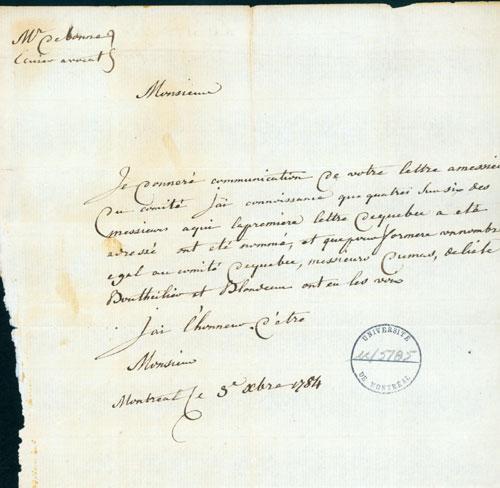 Mr Debonne
Ecuier avocat
Monsieur
Je donneré communication de votre lettre amessieu
du comité J'ai connoissance que quatrei sur six des
messieurs aqui lapremière lettre dequebec a eté
adressé ont eté nommé, et que pour former un nombre
egal au comité dequebec, messieurs Dumas, delisle
Boutheilier et Blondeau ont eu les voix
J'ai l'honneur d'être
Monsieur
Montréal le 3e xbre 1784
UNIVERSITÉ
DE MONTRÉAL